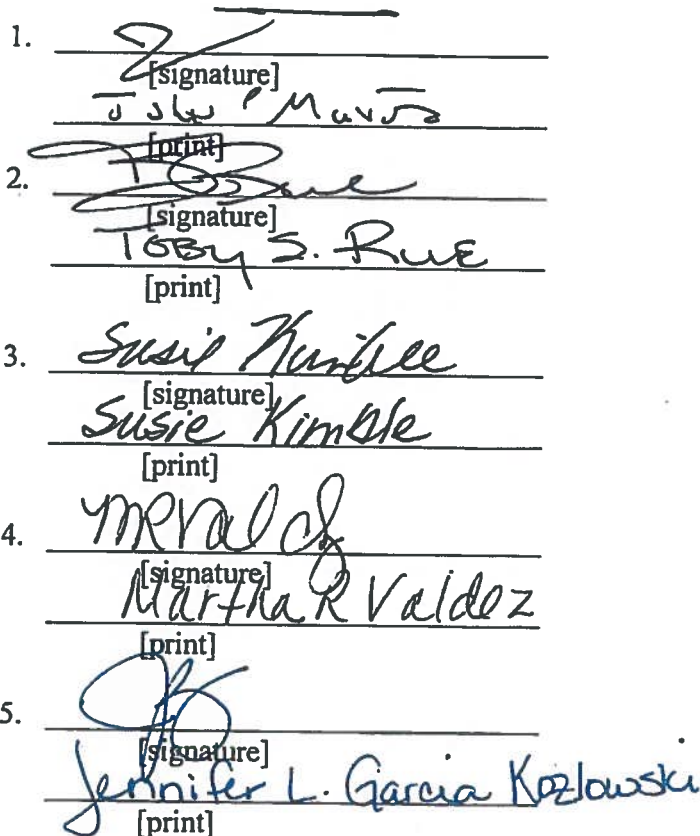 1.
[signature]
[print]
2.
[signature]
Toby S. Rue
[print]
3. Susie Kimble
[signature]
Susie Kimble
[print]
4. MRValdz
[signature]
Martha R Valdez
[print]
5.
[signature]
Jennifer L. Garcia Kozlowski
[print]